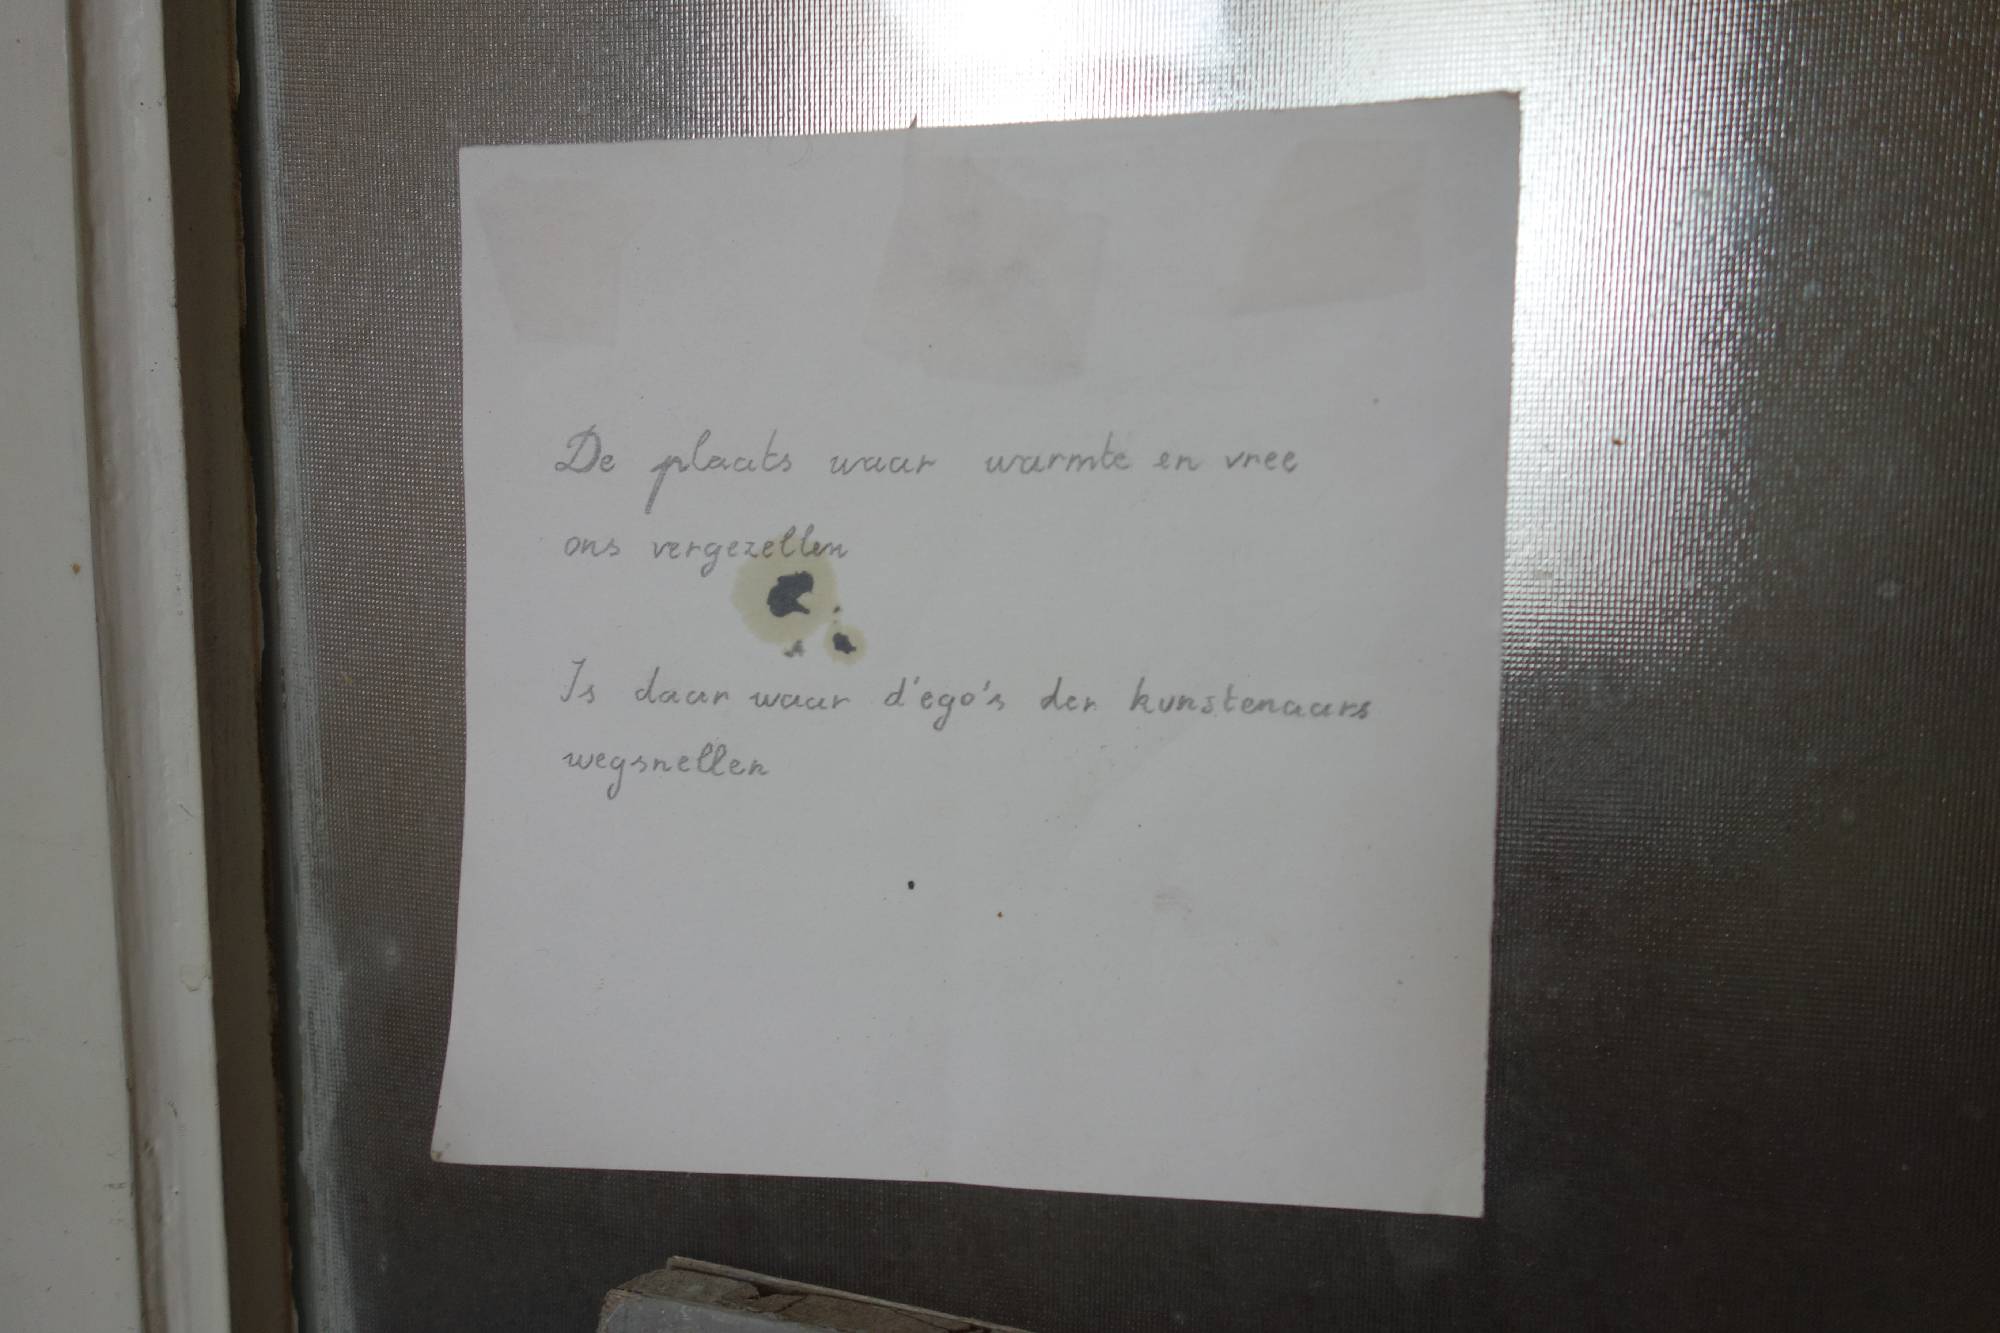 De plaats waar warmte en vree
ons vergezellen
Is daar waar d'ego's der kunstenaars
wegsnellen